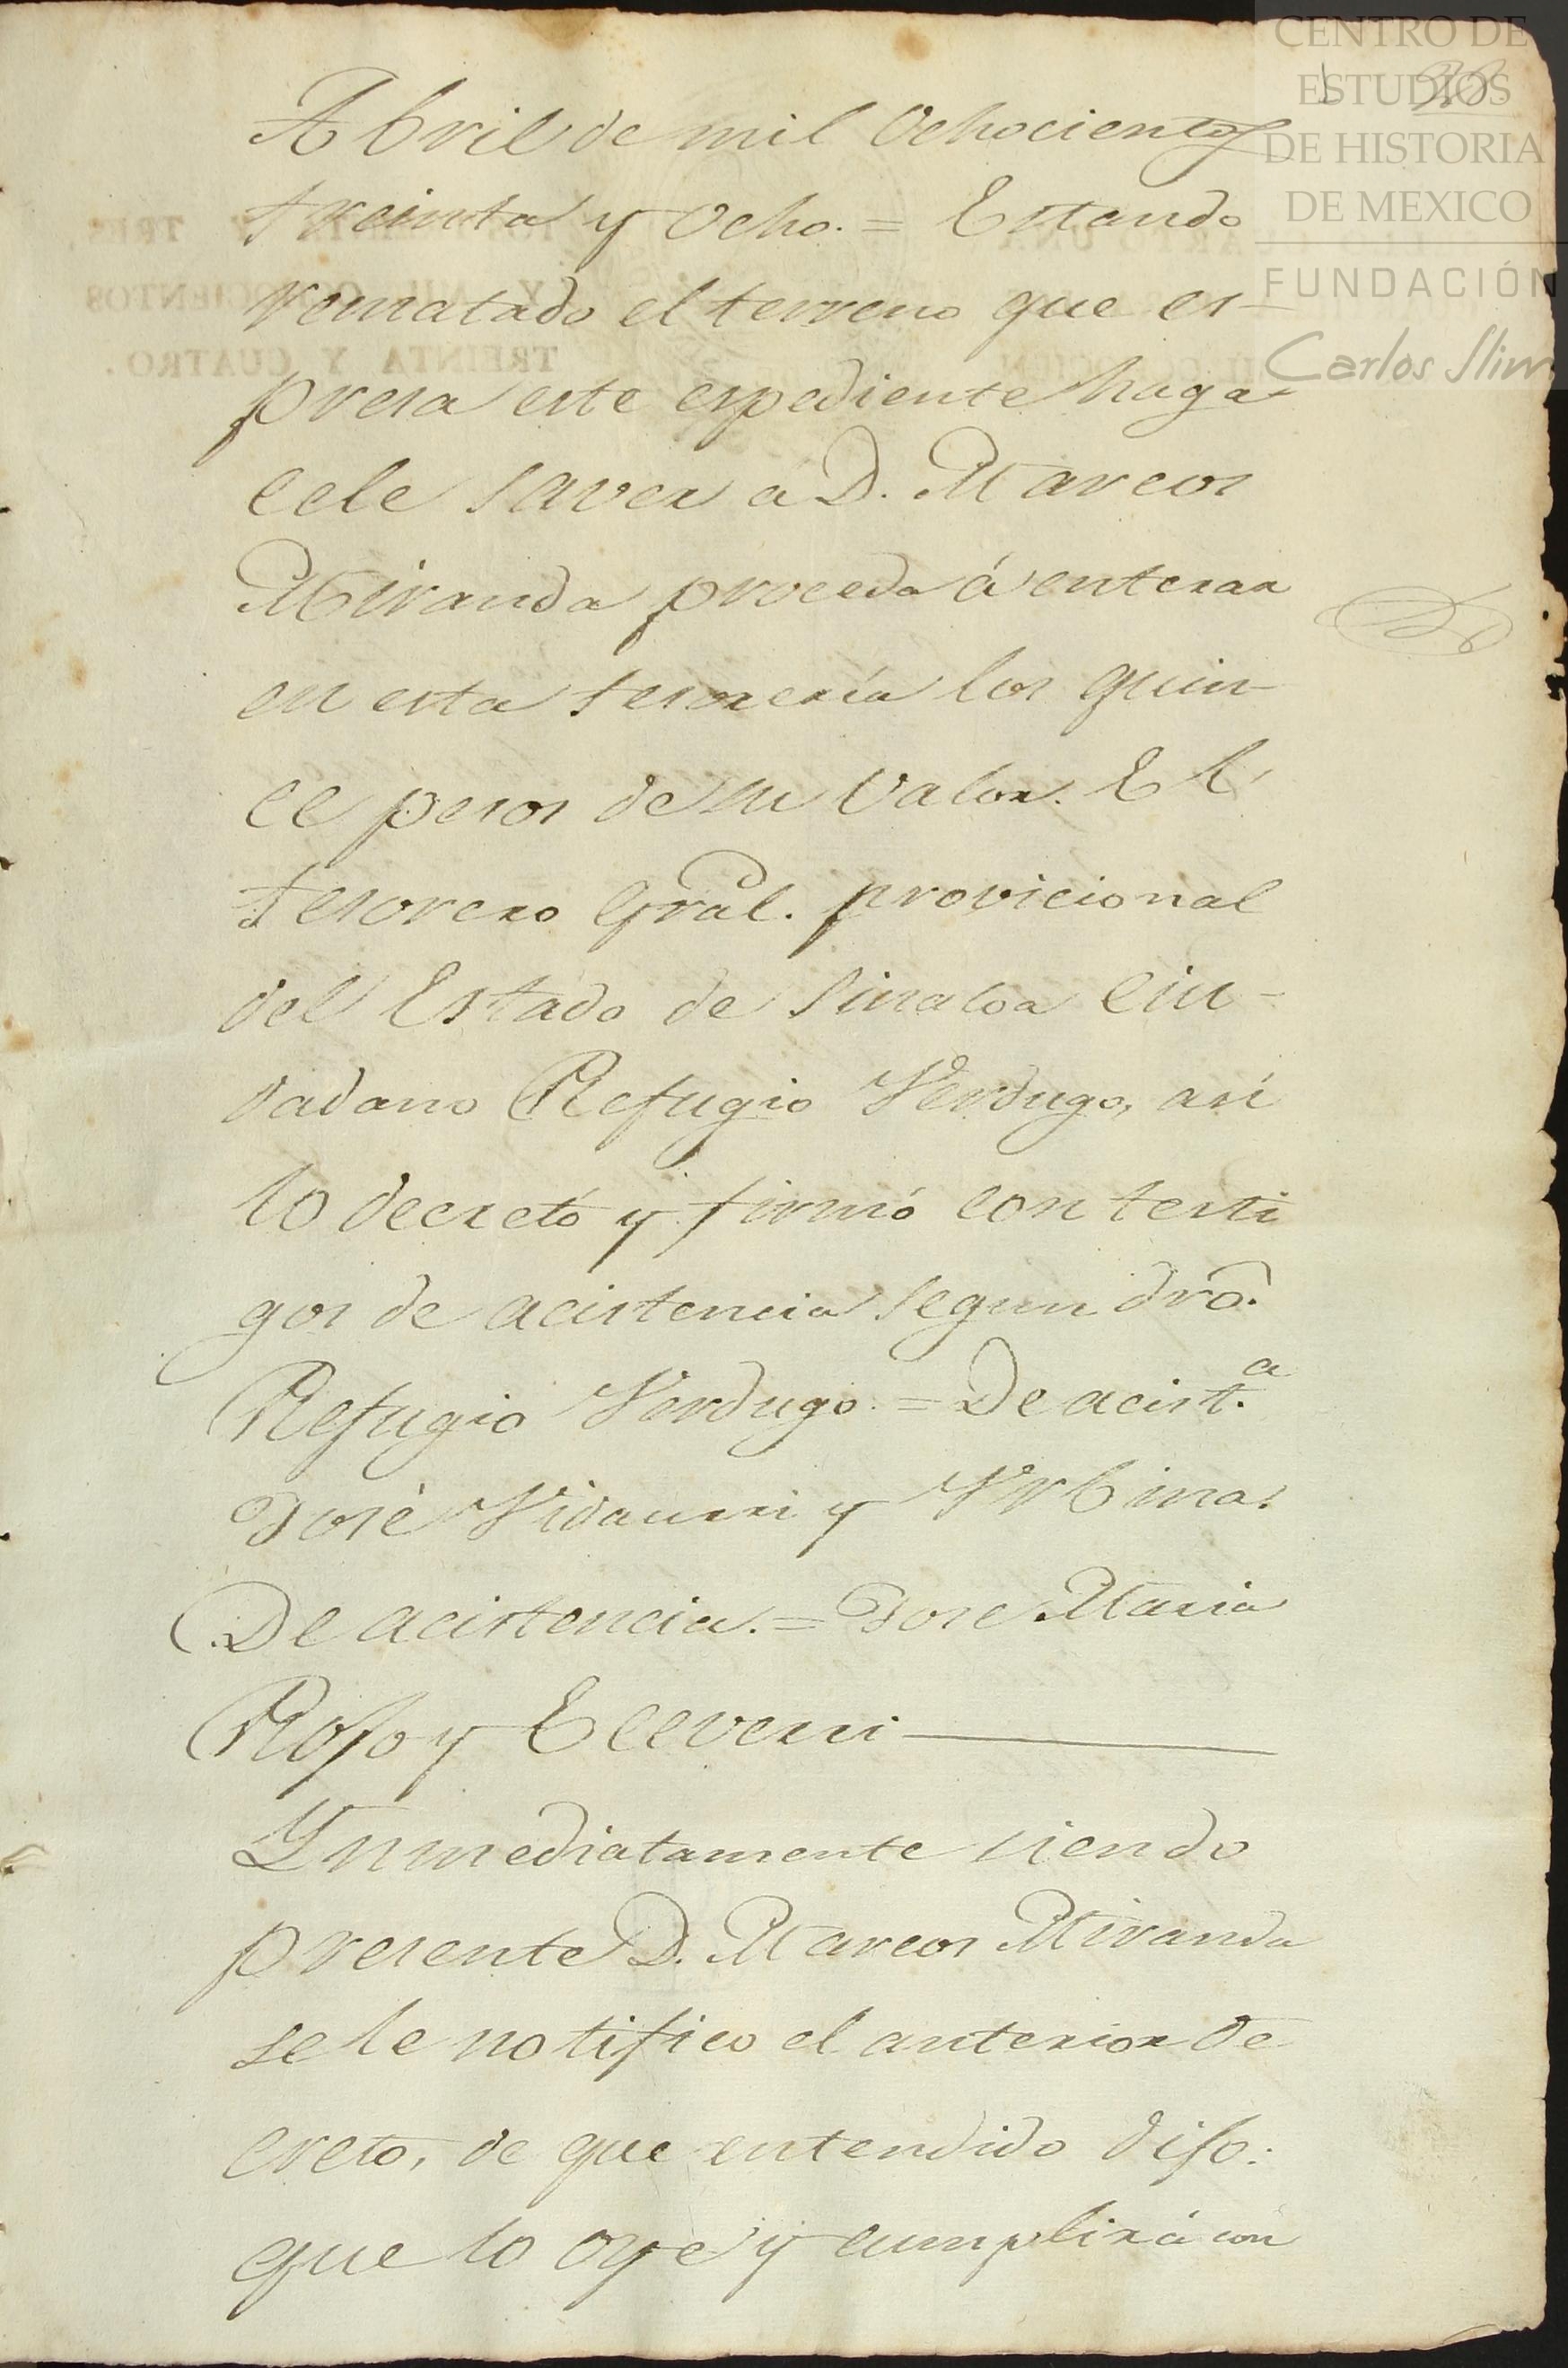 CENTRO DE
ESTUDIOS
DE HISTORIA
DE MEXICO
FUNDACIÓN
Carlos Slim
Abril de mil Ochocientos
treinta y Ocho. = Estando
rematado el terreno que es-
presa este espediente haga-
cele saver á D. Marcos
Miranda proceda á enterar
en esta tesorería los quin-
ce pesos de su valor. El
tesorero Gral. provicional
del Estado de Sinaloa Ciu-
dadano Refugio Verdugo, así
lo decretó y firmó con testi
gos de acistencia segun dro.
Refugio Verdugo. = De acist.a
José Vidaurri y Vrbina.
De acistencia. = José Maria
Rojo y Eceverri
Ynmediatamente siendo
presente D. Marcos Miranda
se le notifico el anterior de
creto, de que entendido dijo:
que lo oye y cumplirá con